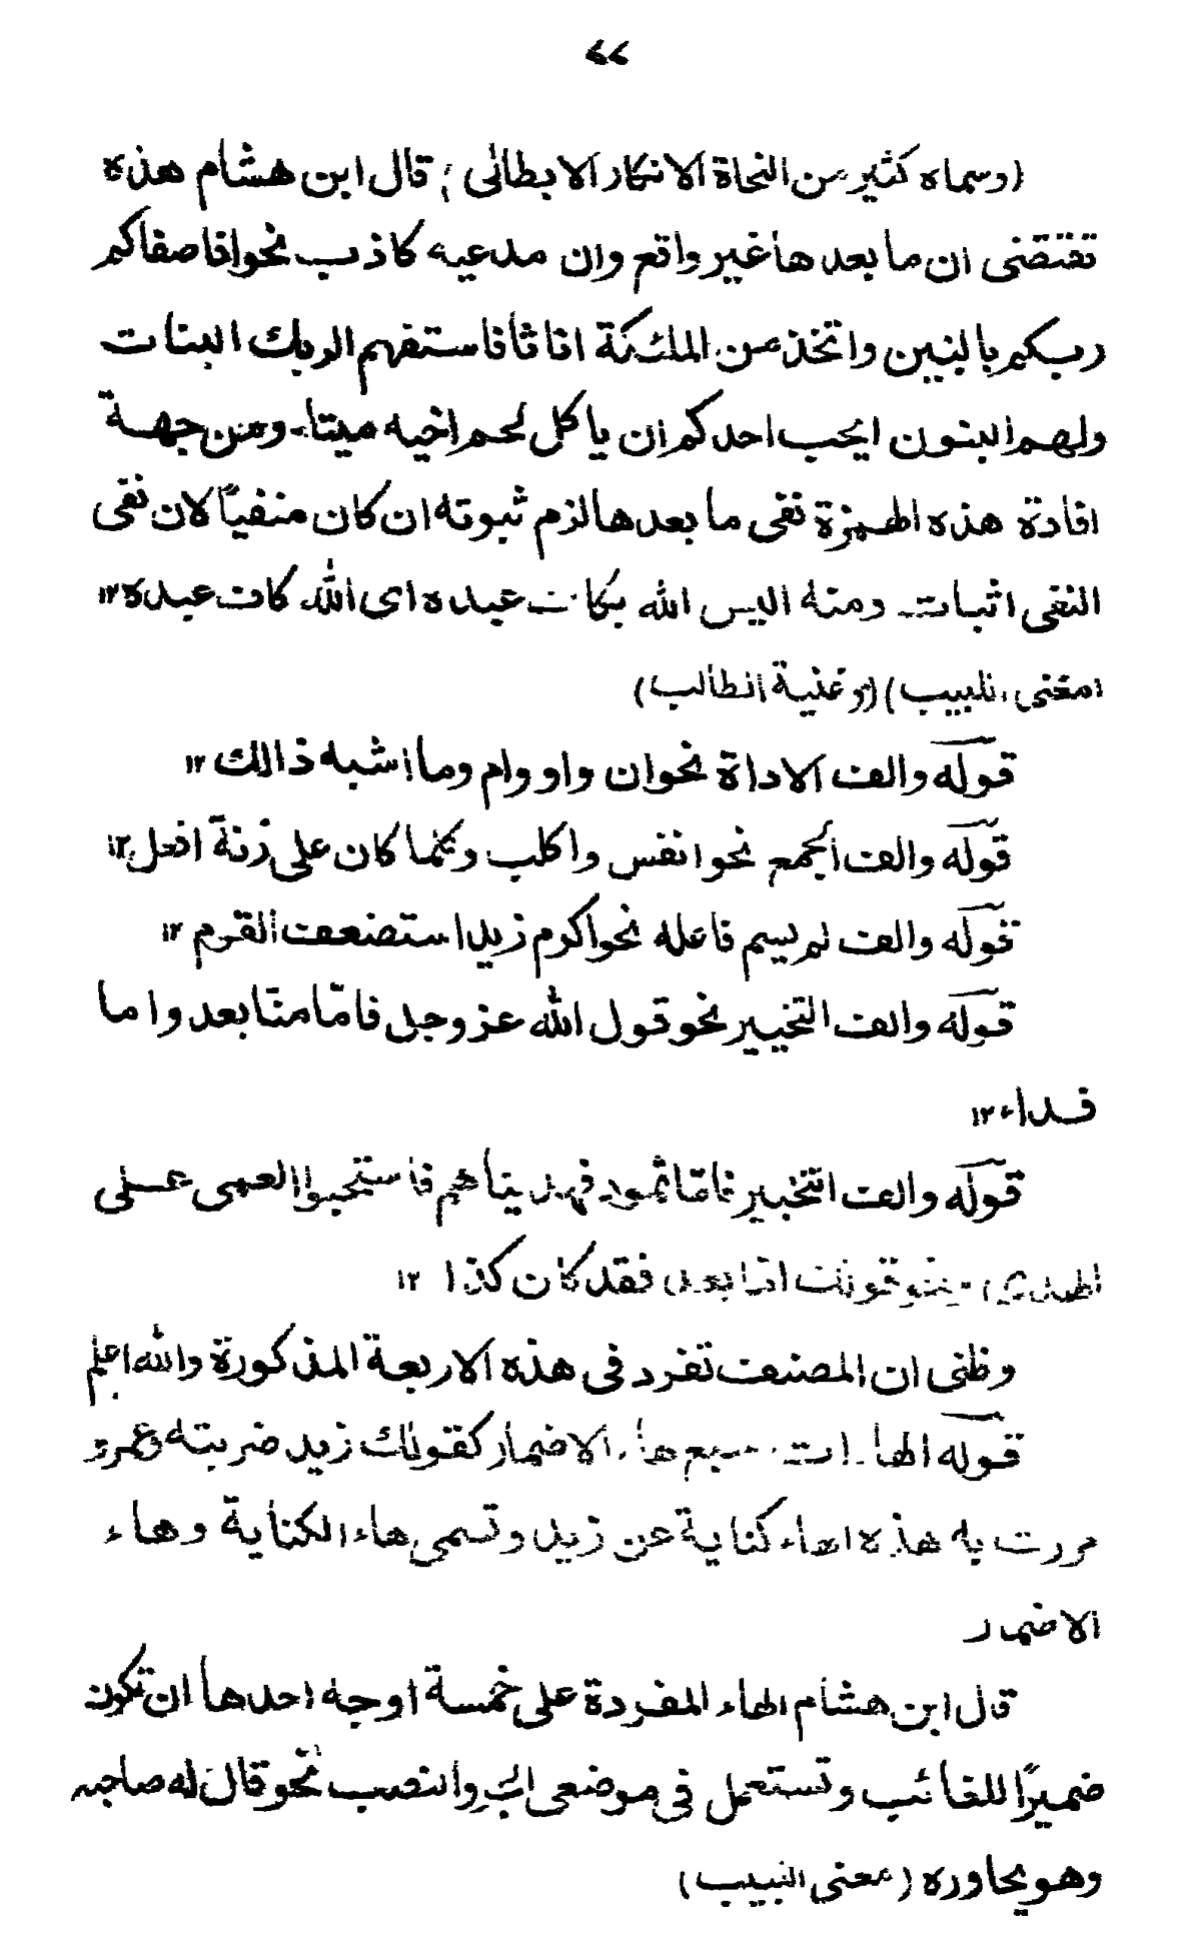 ٤٤
(وسماه كثير من النحاة الانكار الابطالى) قال ابن هشام هذه
تقتضى ان ما بعدها غير واقع وان مدعيه كاذب نحو افاصفاكم
ربكم بالبنين واتخذ من الملئكة اناثا فاستفهم الربك البنات
ولهم البنون ايحب احدكم ان ياكل لحم اخيه ميتا۔ ومن جهة
افادة هذه الهمزة نفى ما بعدها لزم ثبوته ان كان منفيًا لان نفى
النفى اثبات۔ ومنه اليس الله بكاف عبده اى الله كاف عبده ١٢
(مغنى اللبيب) (وغنية الطالب)
قوله والف الاداة نحو ان واو وام وما اشبه ذالك ١٢
قوله والف الجمع نحو انفس واكلب وكلما كان على زنة افعل ١٢
قوله والف لم يسم فاعله نحو اكرم زيد استضعف القوم ١٢
قوله والف التخيير نحو قول الله عز وجل فامّا منّا بعد واما
فداء ١٢
قوله والف التخبير فامّا ثمود فهدينا هم فاستحبوا العمى على
الهدى ونحو قولك اما بعد فقد كان كذا ١٢
وظنى ان المصنف تفرد فى هذه الاربعة المذكورة والله اعلم
قوله الهاات سبع هاء الاضمار كقولك زيد ضربته وعمرو
مررت به هذه الهاء كناية عن زيد وتسمى هاء الكناية وهاء
الاضمار
قال ابن هشام الهاء المفردة على خمسة اوجه احدها ان تكون
ضميرًا للغائب وتستعمل فى موضعى الجر والنصب نحو قال له صاحبه
وهو يحاوره (مغنى اللبيب)